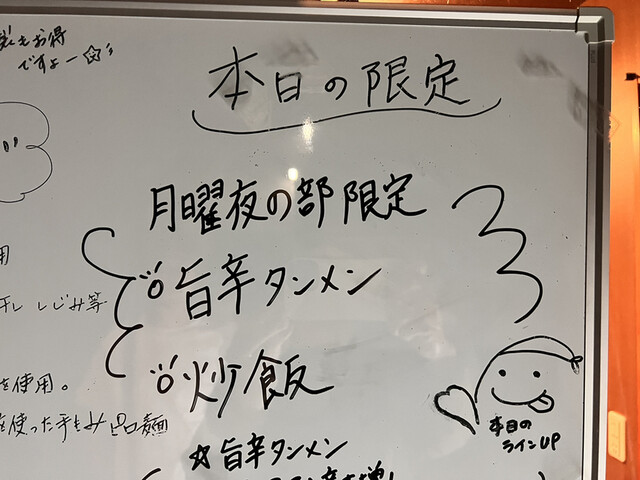 お得
ですよー☆
本日の限定
月曜夜の部限定
旨辛タンメン
炒飯
用
干ししじみ等
を使用。
を使った手もみ
麺
☆旨辛タンメン
本日の
ラインUP